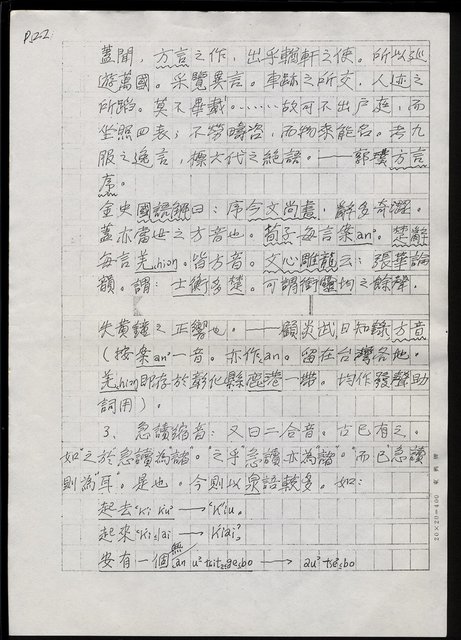 P.122.
蓋聞，方言之作，出乎輶軒之使。所以巡
遊萬國。采覽異言。車跡之所交，人迹之
所蹈。莫不畢載。………故可不出戶庭，而
坐照四表；不勞疇咨，而物來能名。考九
服之逸言，標六代之絕語。——郭璞方言
序。
金史國語解曰：序今文尚書，辭多奇澀。
蓋亦當世之方音也。荀子每言案an²。楚辭
每言羌。皆方音。文心雕龍云：張華論
韻。謂：士衡多楚。可謂衡靈均之餘聲，
失黃鍾之正響也。——顧炎武日知錄方音
（按案an²一音。亦作an。留在台灣各地。
羌即存於彰化縣鹿港一帶。均作發聲助
詞用）。
3、急讀縮音：又曰二合音。古已有之。
如"之於急讀為"諸"。"之乎"急讀亦為"諸"。"而已"急讀
則為"耳"。是也。今則以泉語較多。如：
起去"ki ku" → "kiu。
起來 → kiai²。
安有一個無
20×20=400